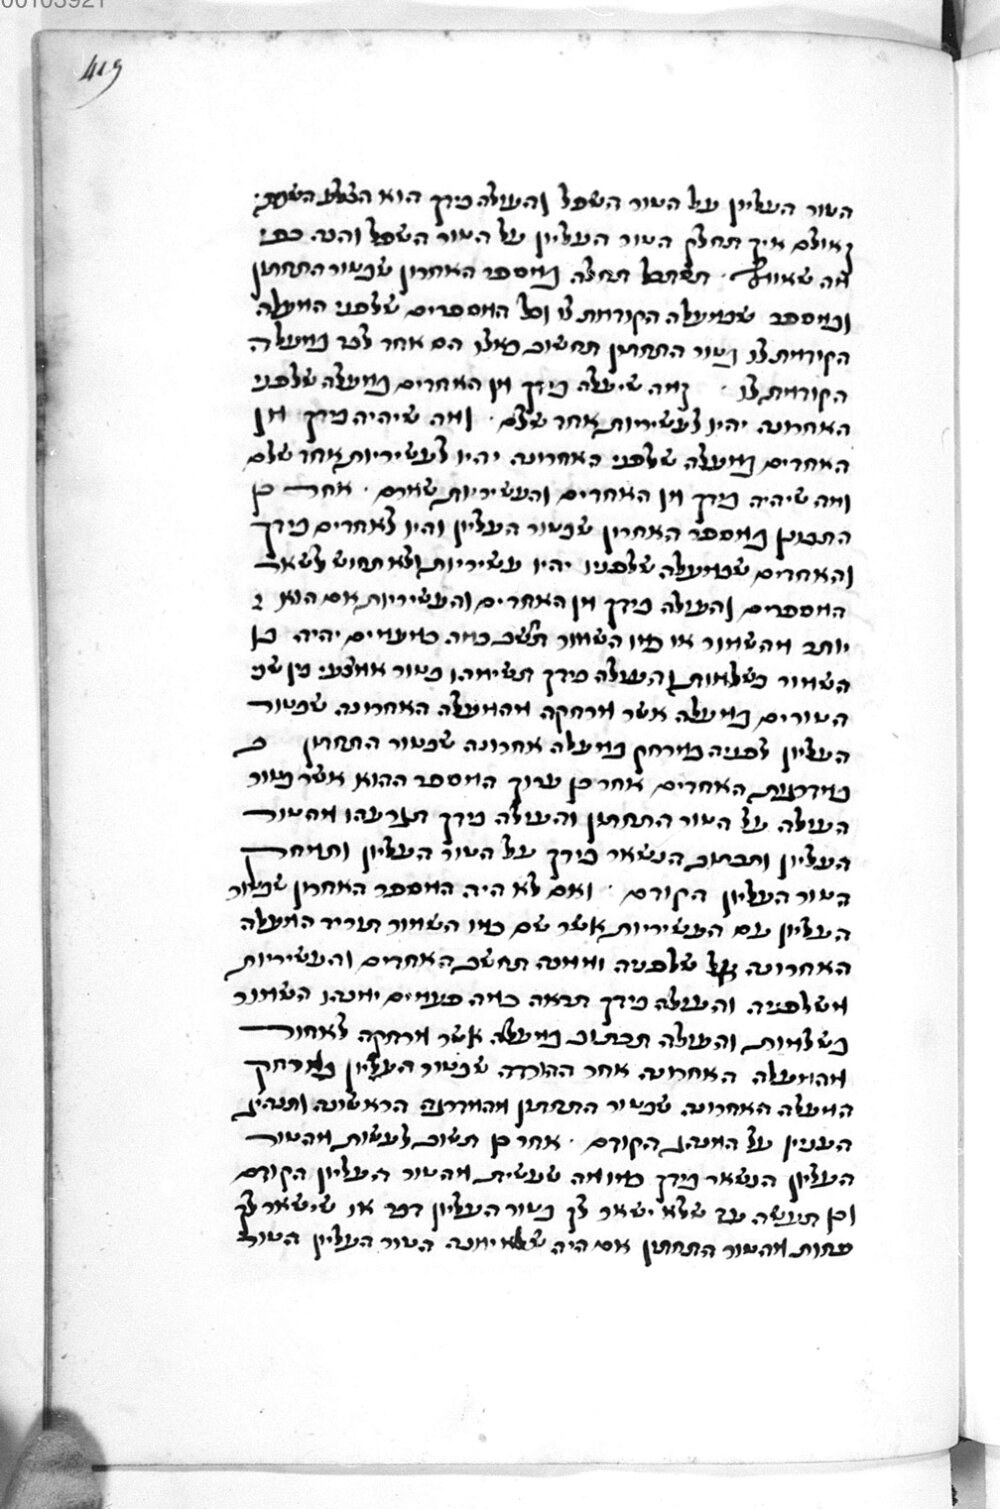 00103921
419
הטור העליון על הטור השפל והעולה בידך הוא הצלע השני.
ואולם איך תחלק הטור העליון על הטור השפל והנה כפי
מה שאומר. תסתכל תחלה במספר האחרון שבטור התחתון
ובמספר שבמעלה הקודמת לו וכל המספרים שלפני המעלה
הקודמת לו בטור התחתון תחשוב כאלו הם אחד לבד במעלה
הקודמת לו. ומה שיעלה בידך מן האחדים במעלה שלפני
האחרונה יהיו לעשיריות אחד שלם. ומה שיהיה בידך מן
האחדים במעלה שלפני האחרונה יהיו לעשיריות אחד שלם
ומה שיהיה בידך מן האחדים והעשיריות שמרם. אחר כן
התבונן במספר האחרון שבטור העליון והיו לאחדים בידך
והאחדים שבמעלה שלפניו יהיו עשיריות ולא תחוש לשאר
המספרים והעולה בידך מן האחדים והעשיריות אם הוא
יותר מהשמור או כמו השמור תחשב כמה פעמים יהיה בו
השמור בשלמות והעולה בידך תשימהו בטור אמצעי בין שני
הטורים במעלה אשר מרחקה מהמעלה האחרונה שבטור
העליון לפניה כמרחק המעלה אחרונה שבטור התחתון
ממדרגת האחדים אחר כן ערוך המספר ההוא אשר בטור
העולה על הטור התחתון והעולה בידך תגרעהו מהטור
העליון ותכתוב הנשאר בידך על הטור העליון ותמחק
הטור העליון הקודם. ואם לא היה המספר האחרון שבטור
העליון עם העשיריות אשר שם כמו השמור תוריד המעלה
האחרונה אל שלפניה וממנה תחשב האחדים והעשיריות
משלפניה והעולה בידך תראה כמה פעמים ימנהו השמור
בשלמות והעולה תכתוב במעלה אשר מרחקה לאחור
מהמעלה האחרונה אחר ההורדה שבטור העליון כמרחק
המעלה האחרונה שבטור התחתון מהמדרגה הראשונה ותנהיג
הענין על המנהג הקודם. אחר כן תשוב לעשות מהטור
העליון הנשאר בידך כמו מה שעשית מהטור העליון הקודם
וכן תעשה עד שלא ישאר לך בטור העליון דבר או שישאר לך
פחות מהטור התחתון אם היה שלא ימנה הטור העליון הטור